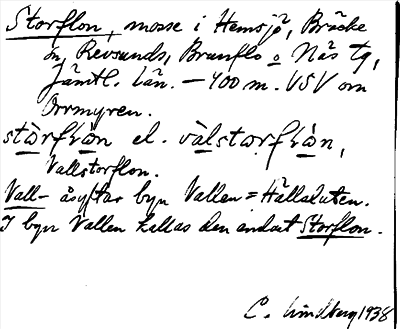 Storflon, mosse i Hemsjö, Bräcke
sn, Revsunds, Brunflo o Näs tg,
Jämtl. län. — 400 m. VSV om
Orrmyren.
stòrflòn el. vàlstorflòn,
Vallstorflon.
Vall- åsyftar byn Vallen = Hällåsluten.
I byn Vallen kallas den endast Storflon.
C. Lindberg 1938